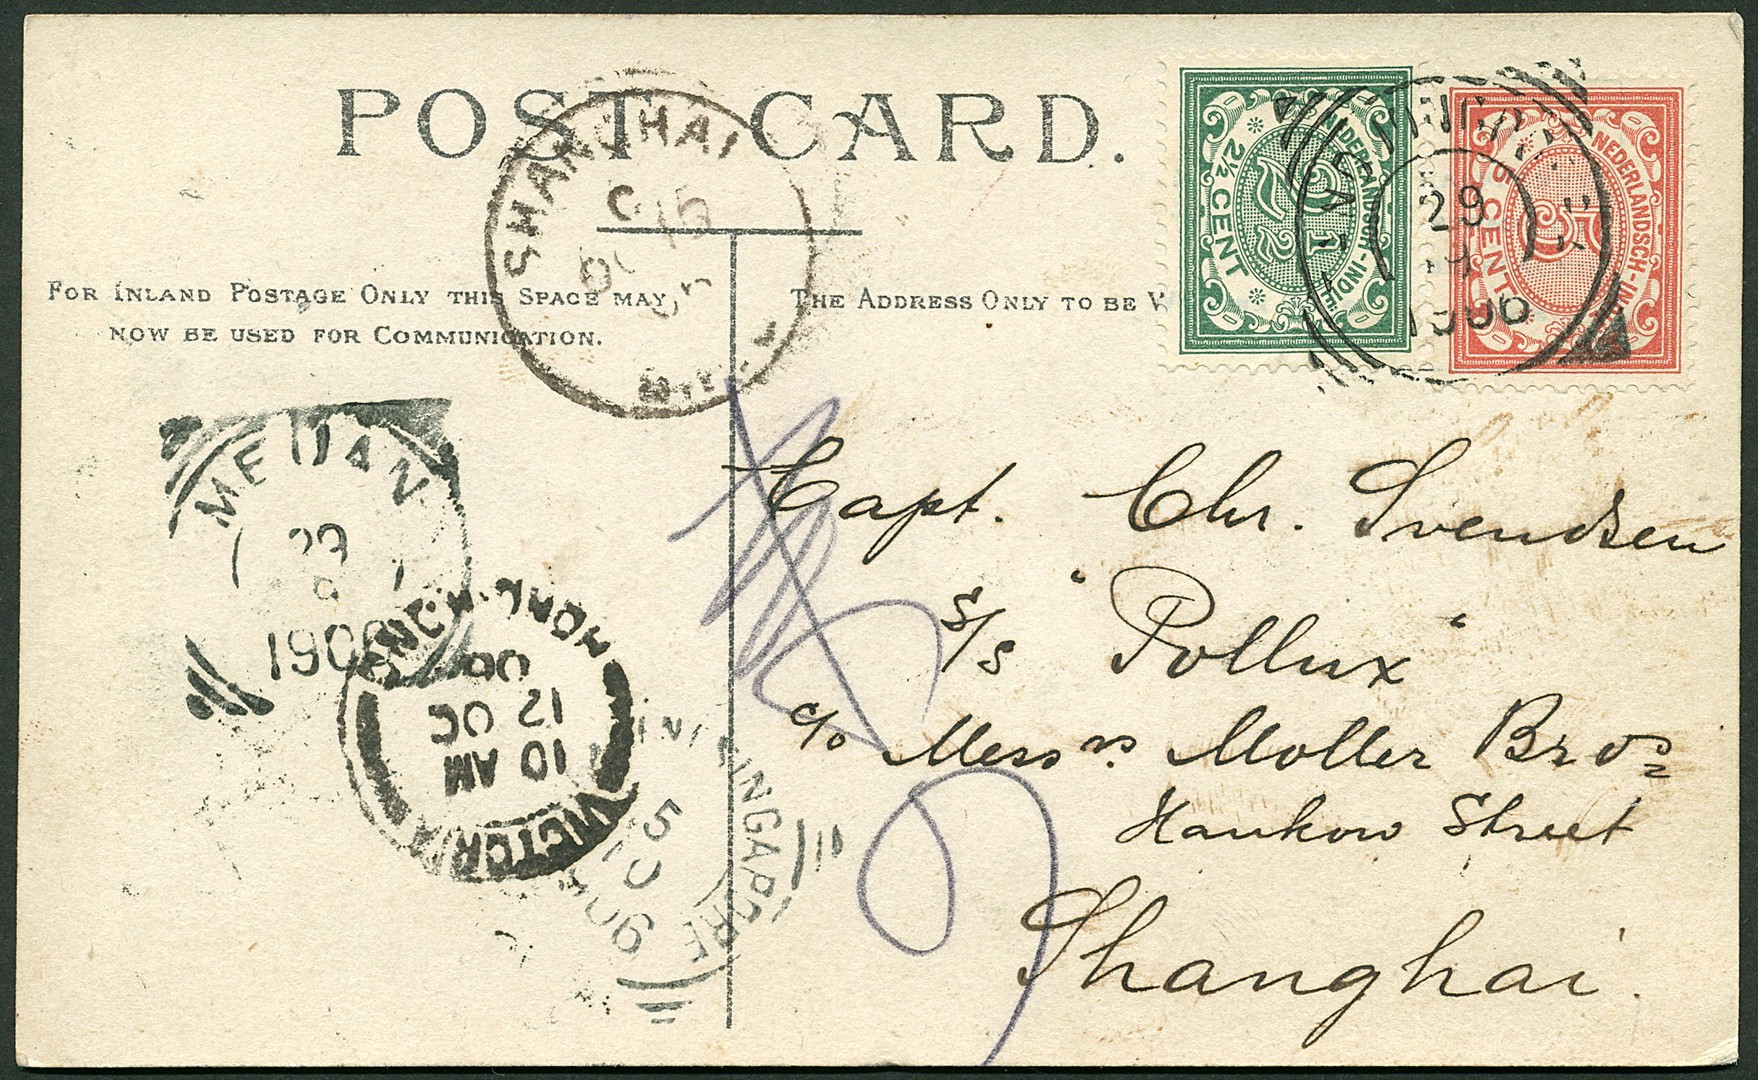 POST CARD.
FOR INLAND POSTAGE ONLY THIS SPACE MAY
NOW BE USED FOR COMMUNICATION.
THE ADDRESS ONLY TO BE
SHANGHAI
NEDERLANDSCH-INDIE
2½ CENT
2½
NEDERLANDSCH-IND
5 CENT
5
29
1906
MEDAN
1906
VICTORIA
HONG KONG
10 AM
12 OC
06
SINGAPORE
5
1906
Capt. Chr. Svendsen
S/S "Pollux"
c/o Messrs Moller Bros
Hankow Street
Shanghai.